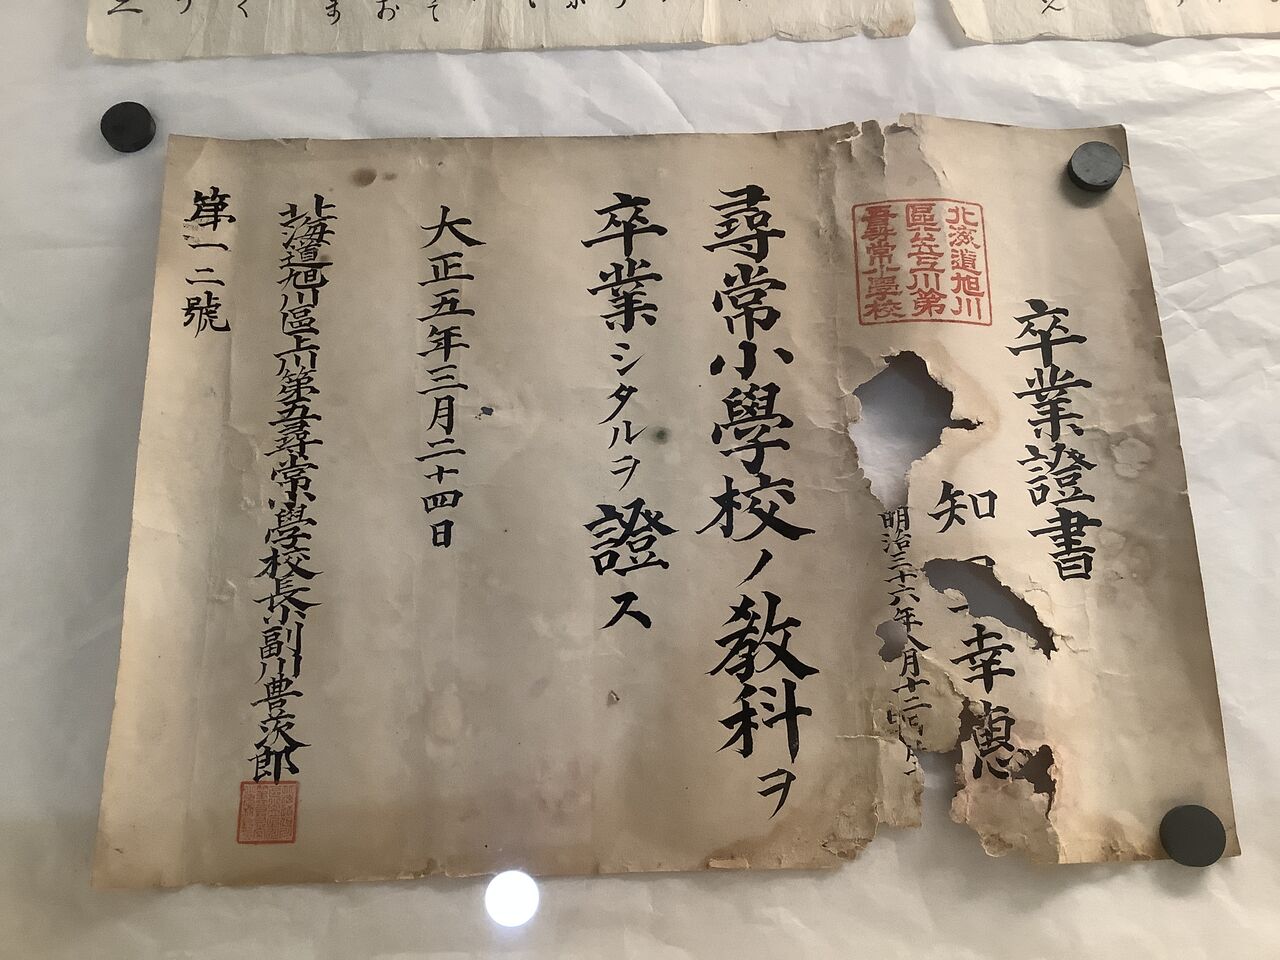 卒業證書
知 幸惠
明治三十六年 月十二
北海道旭川
區上川第
五尋常小學校
尋常小學校ノ教科ヲ
卒業シタルヲ證ス
大正五年三月二十四日
北海道旭川區上川第五尋常小學校長小副川豊茨郎
第一二號